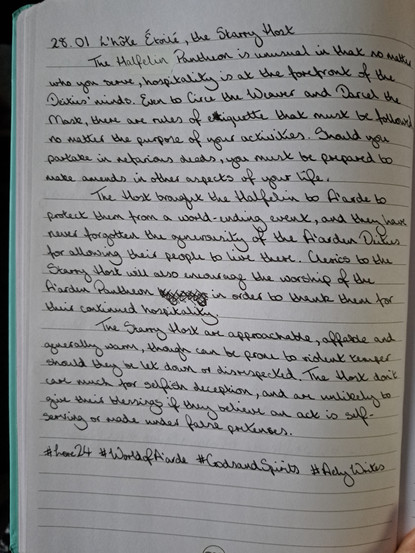 28.01 L'hôte Étoilé, the Starry Host
The Halfelin Pantheon is unusual in that no matter
who you serve, hospitality is at the forefront of the
Deitus' minds. Even to Circe the Weaver and Dariel the
Mask, there are rules of etiquette that must be followed
no matter the purpose of your activities. Should you
partake in nefarious deeds, you must be prepared to
make amends in other aspects of your life.
The Host brought the Halfelin to A'arde to
protect them from a world-ending event, and they have
never forgotten the generousity of the A'arden Deitus
for allowing their people to live there. Clerics to the
Starry Host will also encourage the worship of the
A'arden Pantheon in order to thank them for
their continued hospitality.
The Starry Host are approachable, affable and
generally warm, though can be prone to violent temper
should they be let down or disrespected. The Host don't
care much for selfish deception, and are unlikely to
give their blessings if they believe an act is self-
serving or made under false pretenses.
#Lore24 #WorldofA'arde #GodsandSpirits #AclyWrites